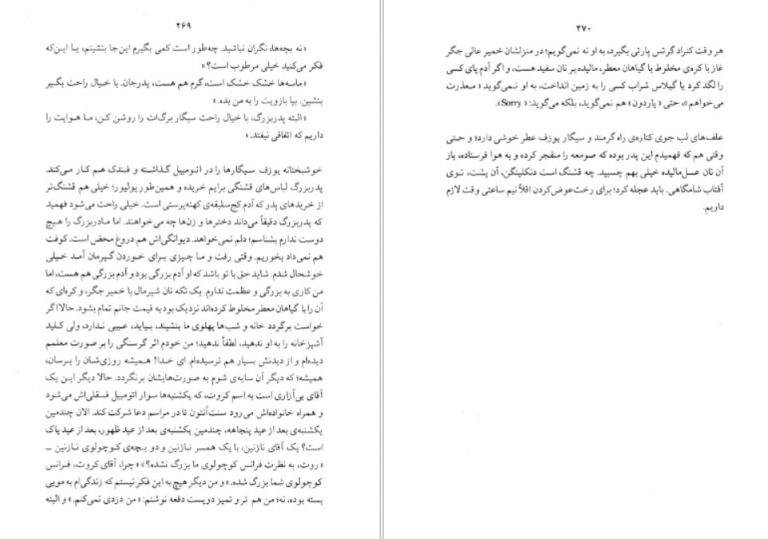 ۲۶۹
«نه بچه‌ها، نگران نباشید. چه‌طور است کمی بگیرم این‌جا بنشینم، یا این‌که
فکر می‌کنید خیلی مرطوب است؟»
«ماسه‌ها خشک خشک است، گرم هم هست، پدرجان. با خیال راحت بگیر
بنشین. بیا بازویت را به من بده.»
«البته پدربزرگ، با خیال راحت سیگار برگ‌ات را روشن کن، ما هوایت را
داریم که اتفاقی نیفتد.»
خوشبختانه یوزف سیگارها را در اتومبیل گذاشته و فندک هم کار می‌کند.
پدربزرگ لباس‌های قشنگی برایم خریده و همین‌طور پولیور؛ خیلی هم قشنگ‌تر
از خریدهای پدر که آدم کج‌سلیقه‌ی کهنه‌پرستی است. خیلی راحت می‌شود فهمید
که پدربزرگ دقیقاً می‌داند دخترها و زن‌ها چه می‌خواهند. اما مادربزرگ را هیچ
دوست ندارم بشناسم؛ دلم نمی‌خواهد. دیوانگی‌اش هم دروغ محض است. کوفت
هم نمی‌داد بخوریم. وقتی رفت و ما چیزی برای خوردن گیرمان آمد خیلی
خوشحال شدم. شاید حق با تو باشد که او آدم بزرگی بود و آدم بزرگی هم هست، اما
من کاری به بزرگی و عظمت ندارم. یک تکه نان شیرمال با خمیر جگر، و کره‌ای که
آن را با گیاهان معطر مخلوط کرده‌اند نزدیک بود به قیمت جانم تمام بشود. حالا اگر
خواست برگردد خانه و شب‌ها پهلوی ما بنشیند، بیاید، عیبی ندارد، ولی کلید
آشپزخانه را به او ندهید، لطفاً ندهید؛ من خودم اثر گرسنگی را بر صورت معلمم
دیده‌ام و از دیدنش بسیار هم ترسیده‌ام. ای خدا! همیشه روزی‌شان را برسان،
همیشه؛ که دیگر آن سایه‌ی شوم به صورت‌هایشان برنگردد. حالا دیگر این یک
آقای بی‌آزاری است به اسم کروت، که یکشنبه‌ها سوار اتومبیل فسقلی‌اش می‌شود
و همراه خانواده‌اش می‌رود سنت‌آنتون تا در مراسم دعا شرکت کند. الان چندمین
یکشنبه‌ی بعد از عید پنجاهه، چندمین یکشنبه‌ی بعد از عید ظهور، بعد از عید پاک
است؟ یک آقای نازنین، با یک همسر نازنین و دو بچه‌ی کوچولوی نازنین ــ
«روت، به نظرت فرانس کوچولوی ما بزرگ نشده؟» «چرا، آقای کروت، فرانس
کوچولوی شما بزرگ شده.» و من دیگر هیچ به این فکر نیستم که زندگی‌ام به مویی
بسته بوده، نه؛ من هم تر و تمیز دویست دفعه نوشتم: «من دزدی نمی‌کنم.» و البته
۲۷۰
هر وقت کنراد گرتس پارتی بگیرد، به او نه نمی‌گویم؛ در منزلشان خمیر عالی جگر
غاز با کره‌ی مخلوط با گیاهان معطر، مالیده بر نان سفید هست، و اگر آدم پای کسی
را لگد کرد یا گیلاس شراب کسی را به زمین انداخت، به او نمی‌گوید «معذرت
می‌خواهم»، حتی «پاردون» هم نمی‌گوید، بلکه می‌گوید: «Sorry».
علف‌های لب جوی کناره‌ی راه گرمند و سیگار یوزف عطر خوشی دارد؛ و حتی
وقتی هم که فهمیدم این پدر بوده که صومعه را منفجر کرده و به هوا فرستاده، باز
آن نان عسل‌مالیده خیلی بهم چسبید. چه قشنگ است دنکلینگن، آن پشت، توی
آفتاب شامگاهی. باید عجله کرد؛ برای رخت‌عوض‌کردن اقلاً نیم ساعتی وقت لازم
داریم.